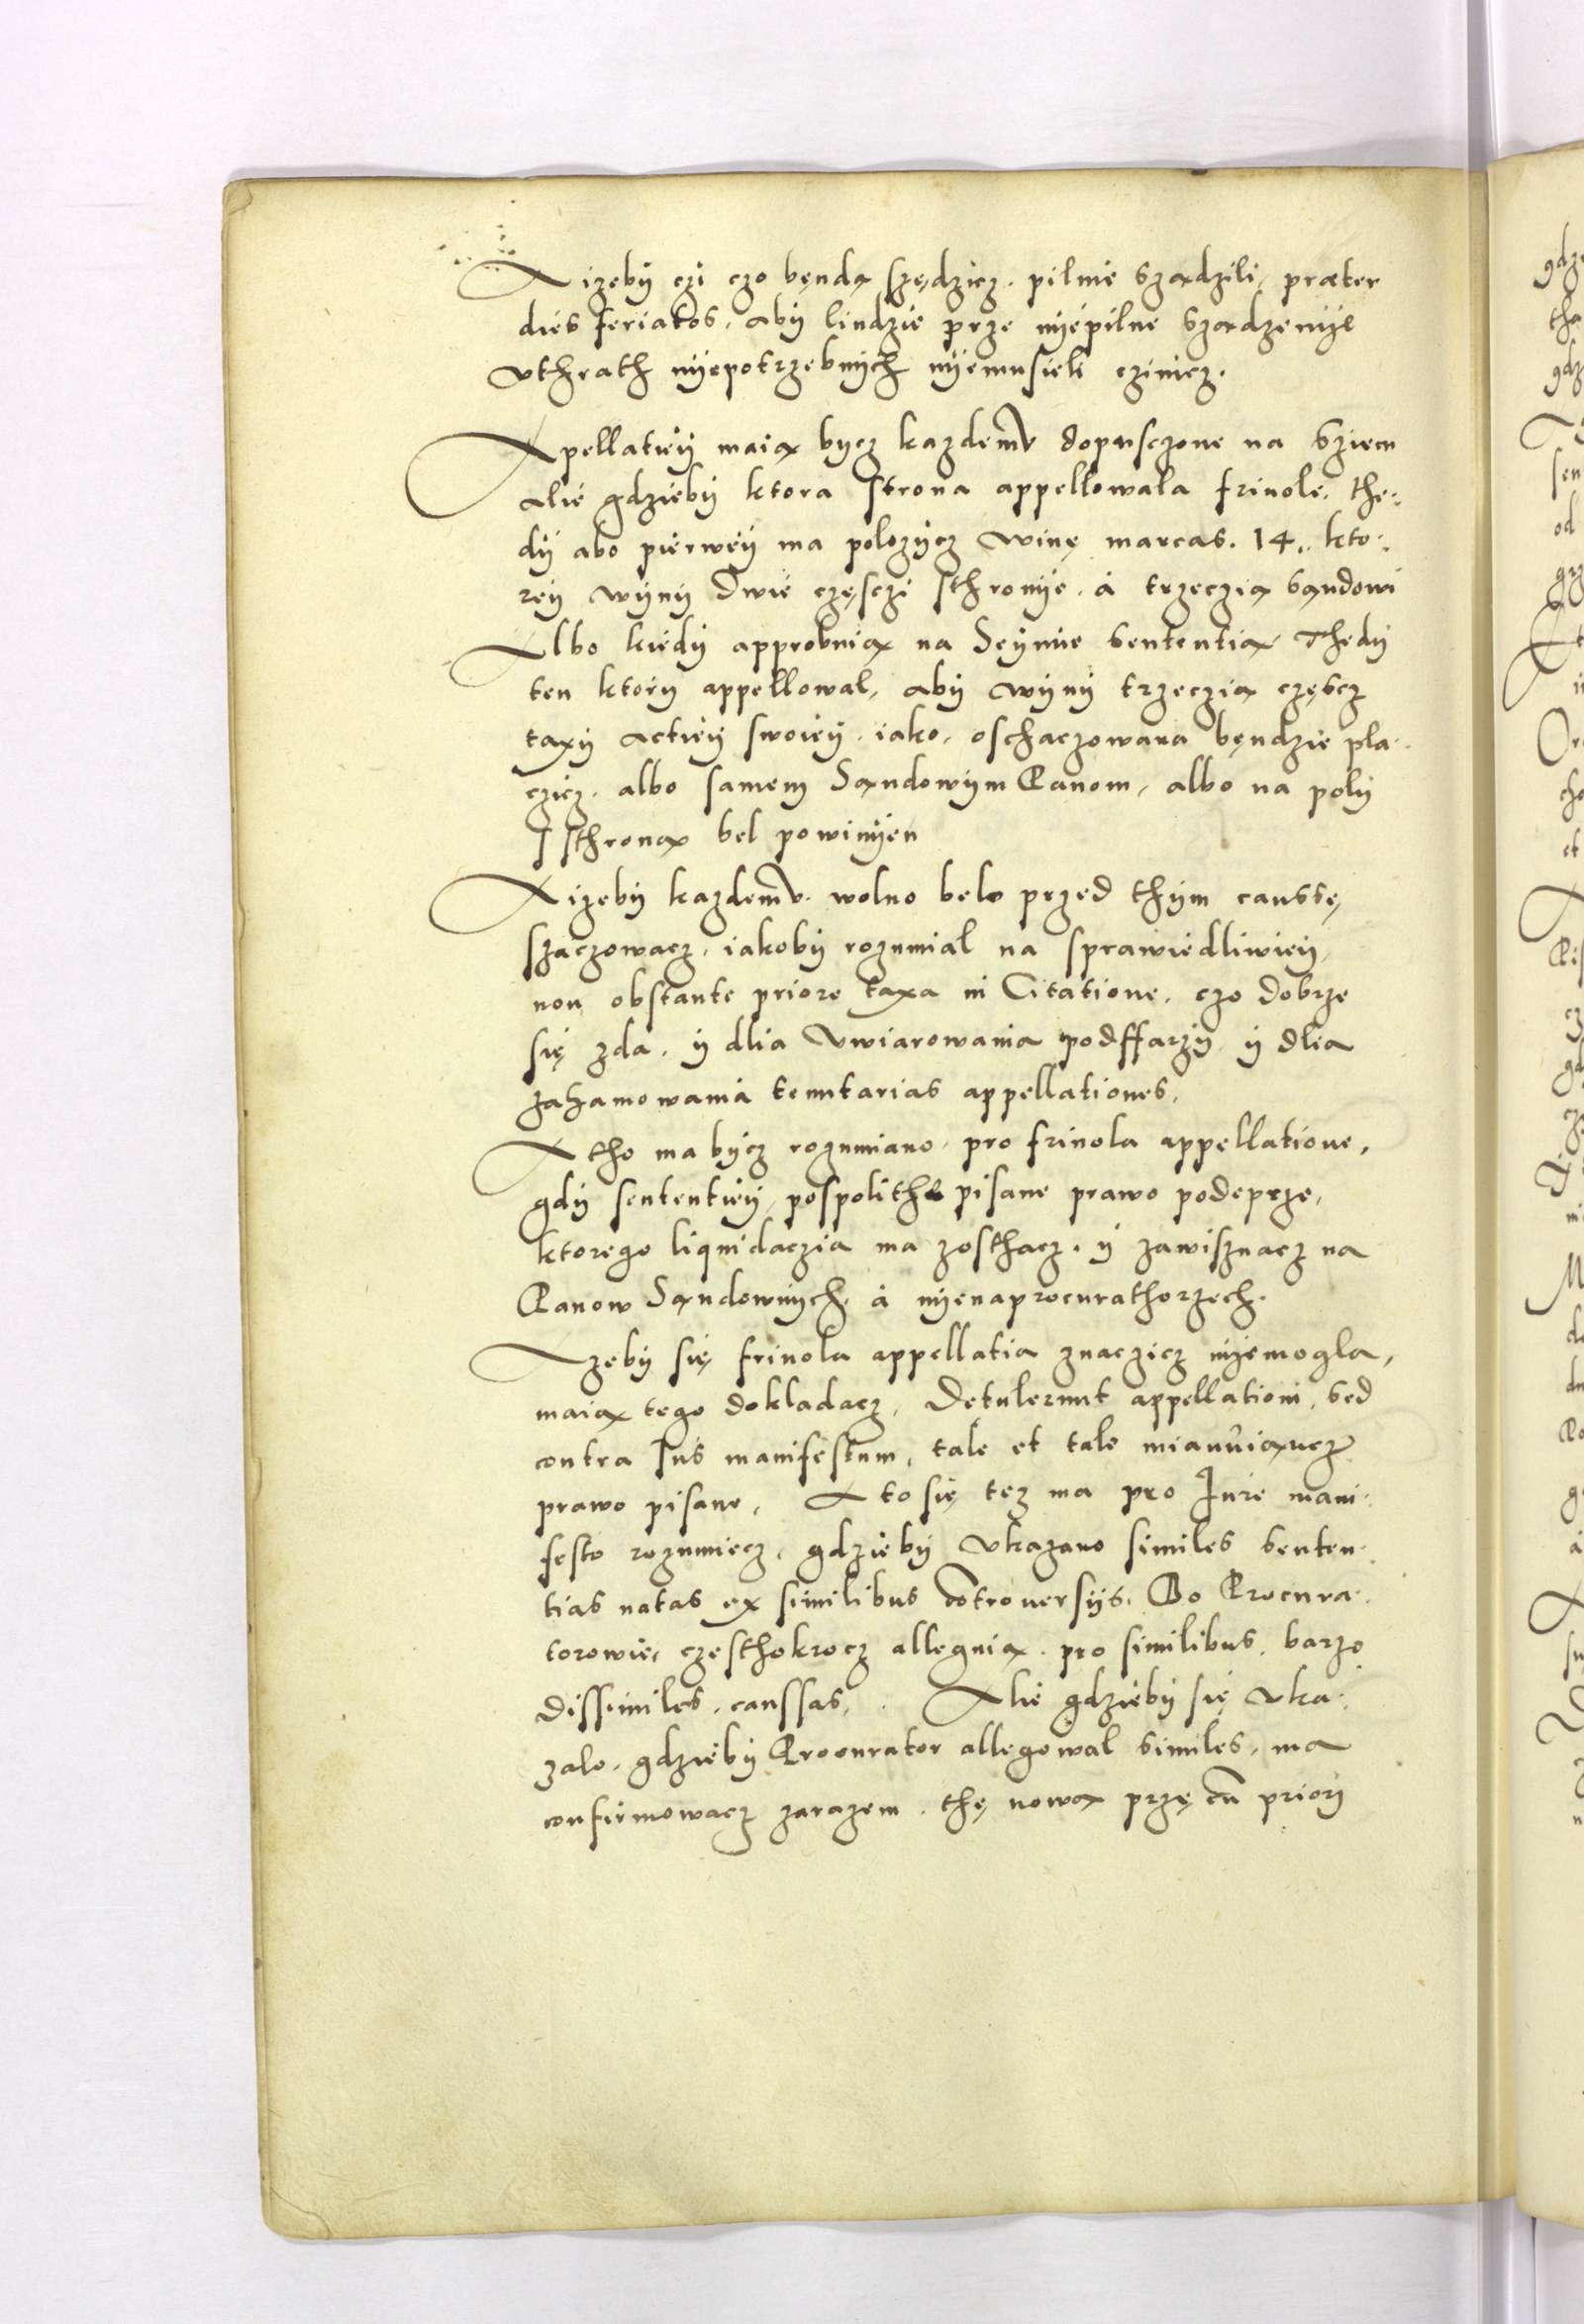 A izebÿ czi czo bęndą szędzicz. pilnie sządzili, præter
dies feriatos, abÿ liudzie prze nÿepilne sządzenÿe
vthrath nÿepotrzebnÿch nÿemusieli czinicz.
Apellatieÿ maią bycz kazdemv dopusczone na sziem
alie gdziebÿ ktora strona appellowala friuole, the-
dÿ abo pierweÿ ma polozÿcz winę marcas. 14. kto-
reÿ wÿnÿ dwie częsczi sthronÿe. á trzeczią sandowi
Albo kiedÿ approbuią na Seÿmie sententią Thedÿ
ten ktorÿ appellowal, abÿ wÿnÿ trzeczią częscz
taxÿ actieÿ swoieÿ. iako, oschaczowana będzie pla-
czicz. albo samem Sąndowÿm Panom, albo na polÿ
I sthroną bel powinÿen
A izebÿ kazdemv. wolno belo przed thÿm caussę,
szaczowacz, iakobÿ rozumial na sprawiedliwieÿ,
non obstante priore taxa in Citatione, czo dobrze
się zda. ÿ dlia vwiarowania podffarzÿ ÿ dlia
zahamowania temtarias appellationes,
A tho ma bÿcz rozumiano, pro friuola appellatione,
gdÿ sententieÿ, pospolithe pisane prawo podeprze,
ktorego liquidaczia ma zosthacz. ÿ zawisznacz na
Panow Sąndownÿch, á nÿenaprocurathorzech.
A zebÿ się friuola appellatia znaczicz nÿemogla,
maią tego dokladacz, Detulerunt appellationi, sed
contra Ius manifestum, tale et tale mianuiąncz
prawo pisane, A to się tez ma pro Iure mani-
festo rozumiecz, gdziebÿ vkazano similes senten-
tias natas ex similibus controuersijs. Bo Procura-
torowie, czesthokrocz alleguią. pro similibus. barzo
dissimiles. caussas. Alie gdziebÿ się vka-
zalo, gdziebÿ Procurator allegowal similes, ma
confirmowacz zarazem. thę nową przę cum priori